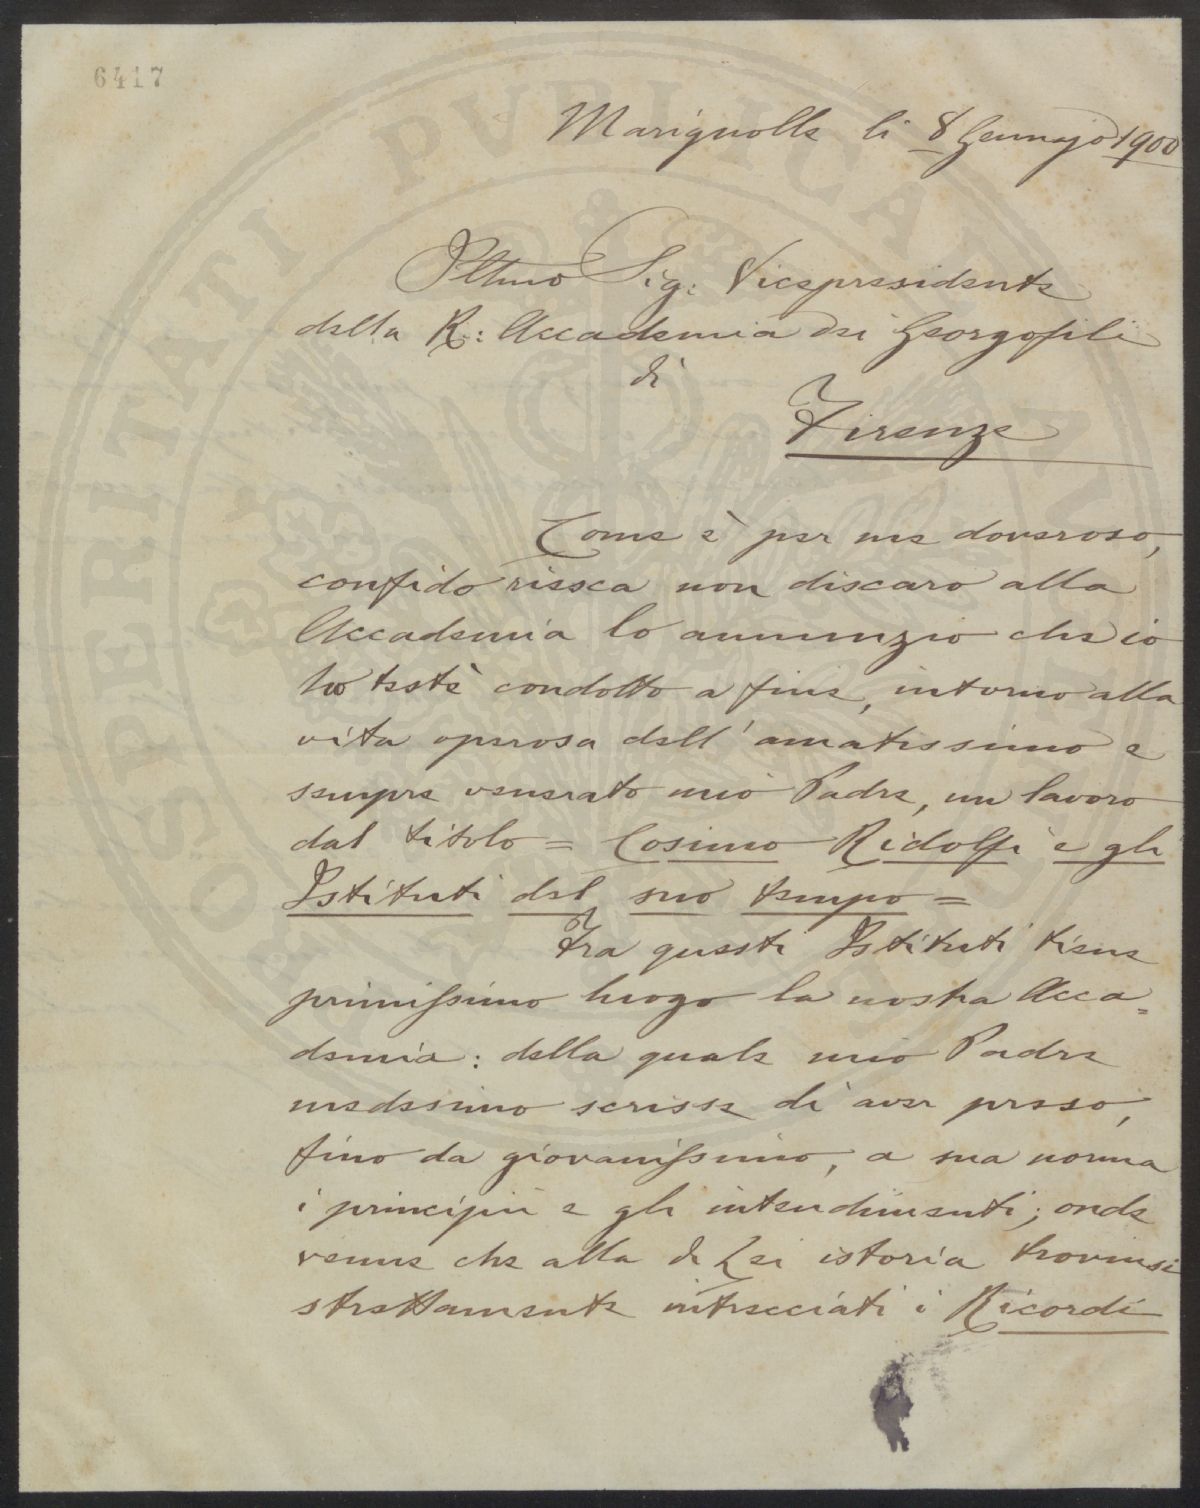 6417
Marignolle li 8 Gennajo 1900
Illmo Sig: Vicepresidente
della R: Accademia dei Georgofili
di
Firenze
Come è per me doveroso,
confido riesca non discaro alla
Accademia lo annunzio che io
ho testè condotto a fine, intorno alla
vita operosa dell'amatissimo e
sempre venerato mio Padre, un lavoro
dal titolo = Cosimo Ridolfi e gli
Istituti del suo tempo =
Fra questi Istituti tiene
primissimo luogo la nostra Acca=
demia: della quale mio Padre
medesimo scrisse di aver preso,
fino da giovanissimo, a sua norma
i principii e gli intendimenti; onde
venne che alla di Lei istoria trovinsi
strettamente intrecciati i Ricordi
PROSPERITATI PVBLICAE